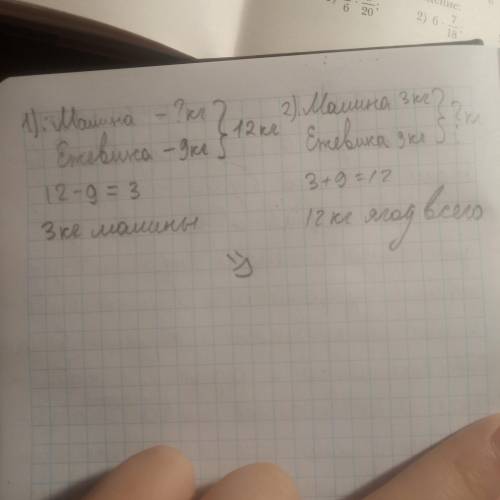 2) 6 · 7/18;
1). Малина – ? кг } 12 кг
Ежевика – 9кг
12 – 9 = 3
3кг малины
2). Малина 3 кг } ? кг
Ежевика 9кг
3 + 9 = 12
12 кг ягод всего